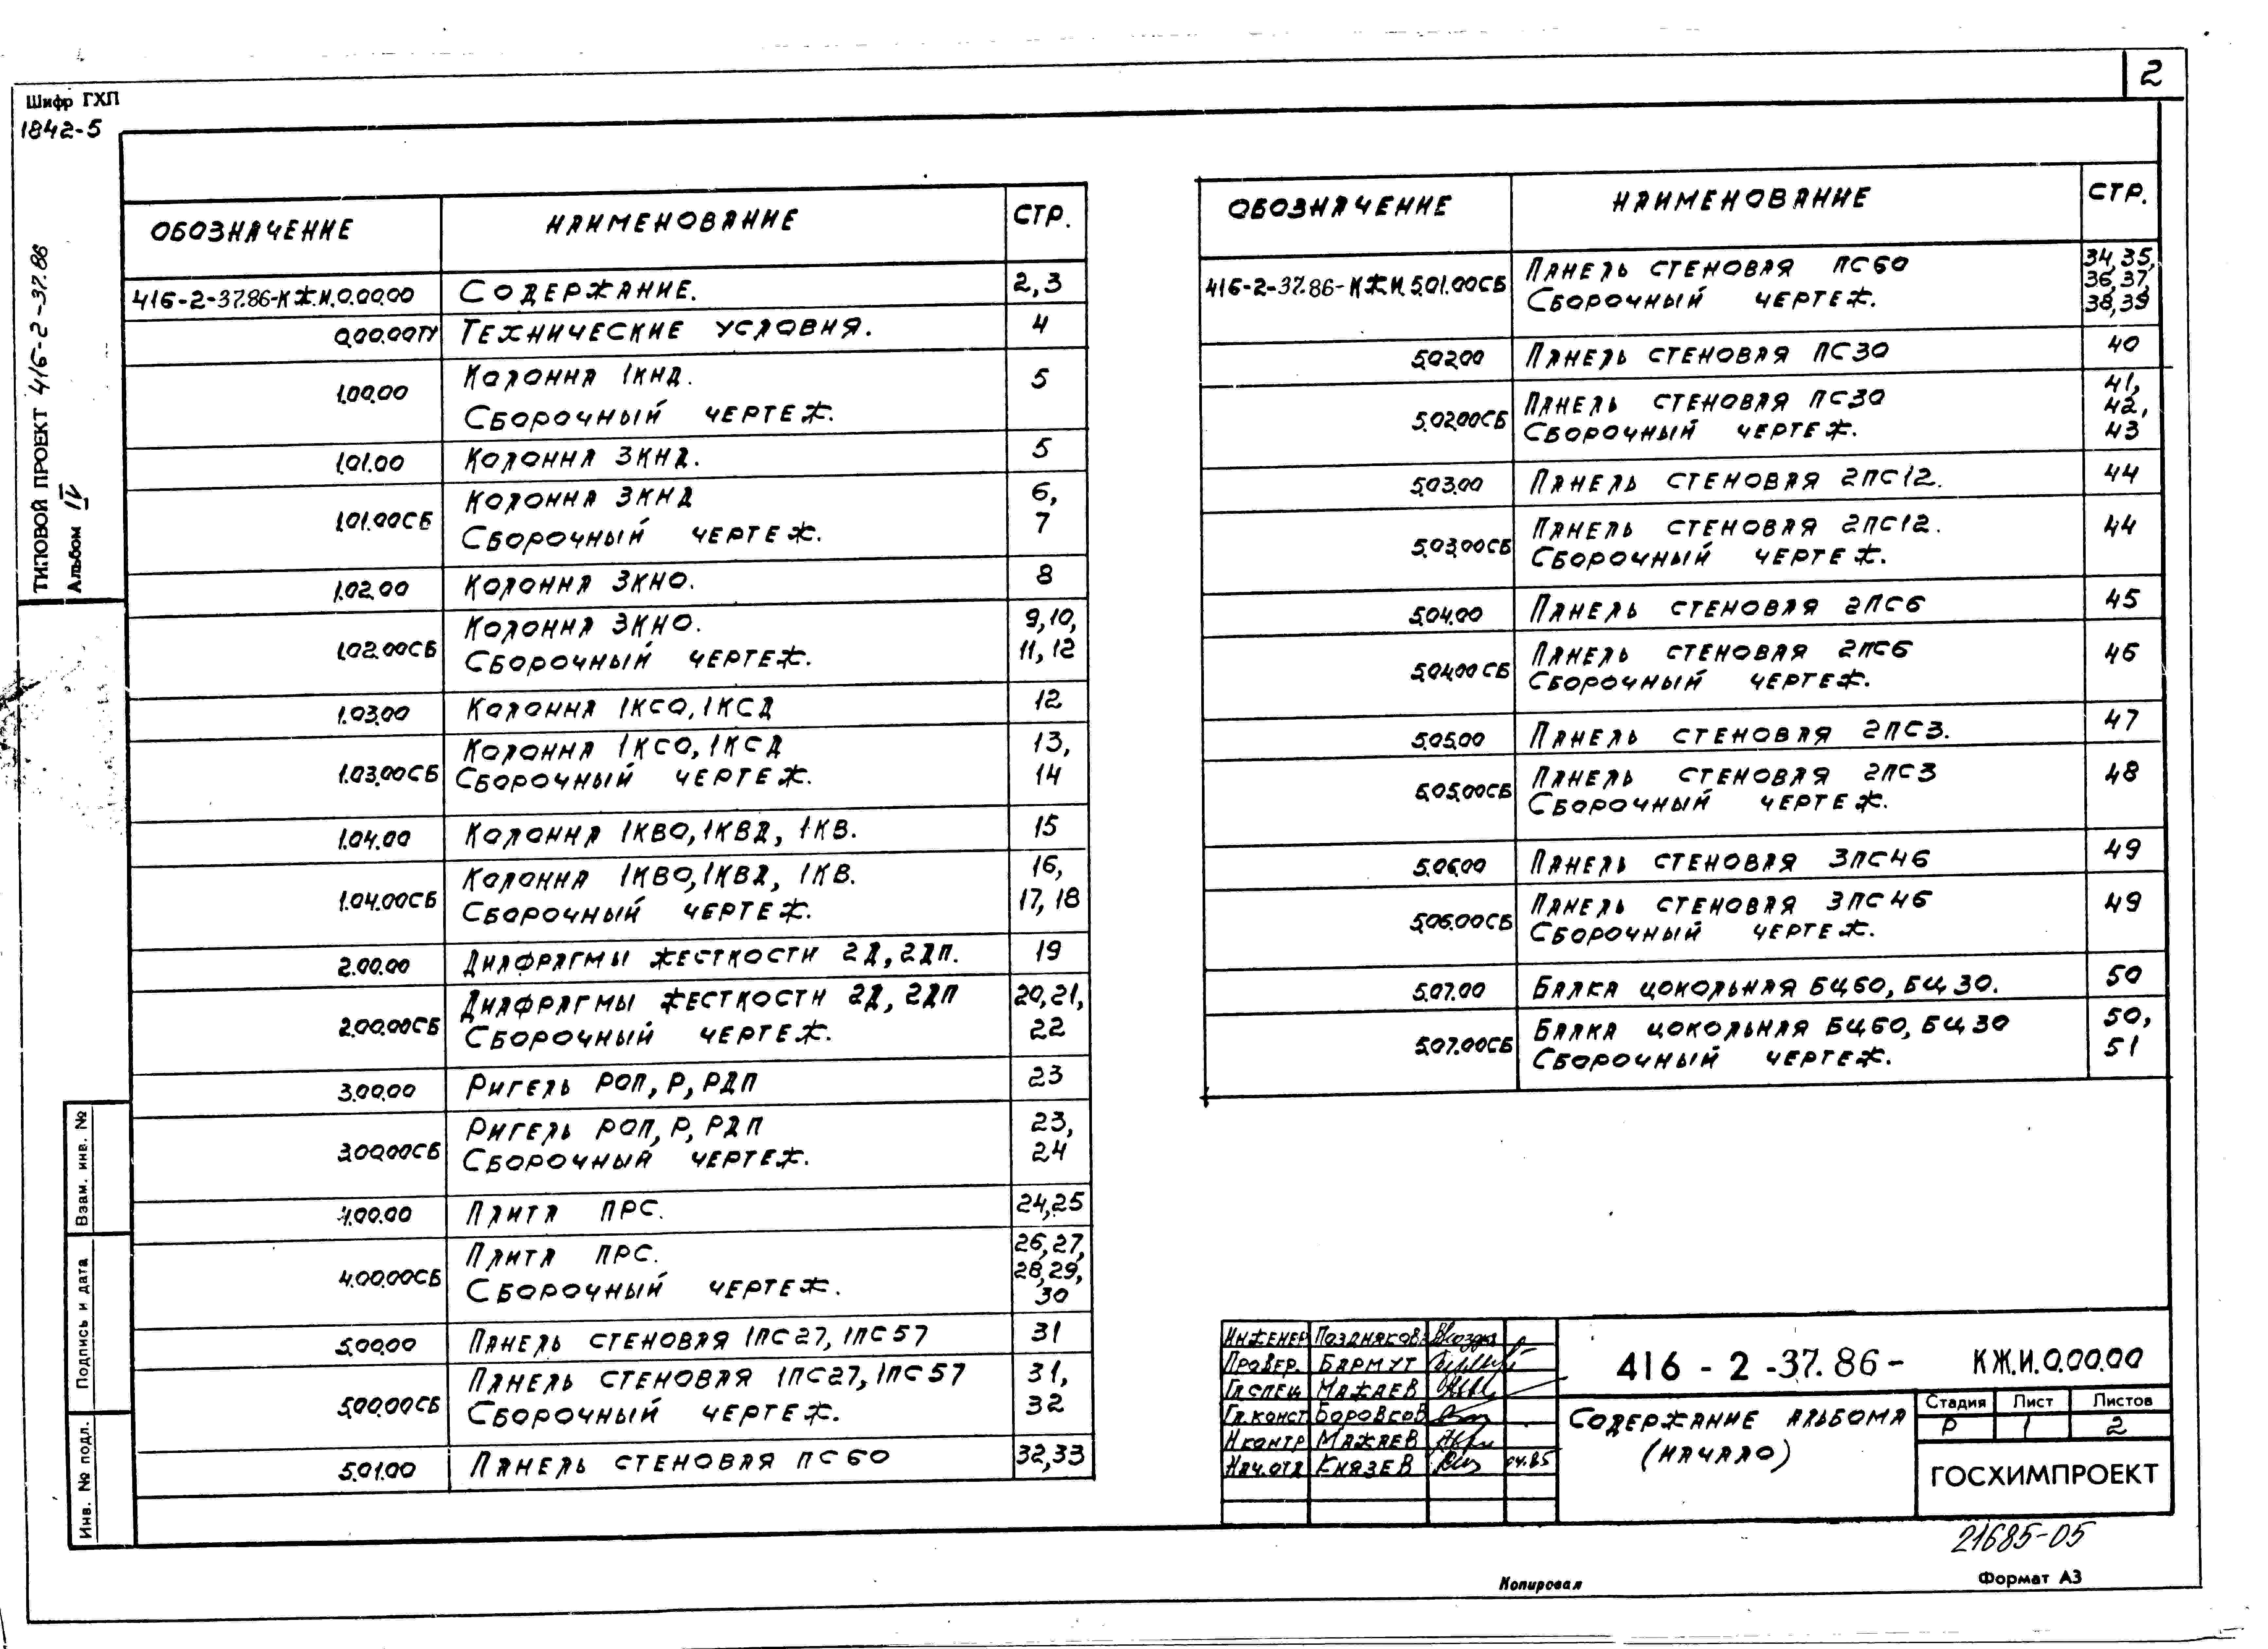 2
Шифр ГХП
1842-5
ТИПОВОЙ ПРОЕКТ 416-2-37.86
Альбом IV
ОБОЗНАЧЕНИЕ НАИМЕНОВАНИЕ СТР.
416-2-37.86-КЖ.И.0.00.00 СОДЕРЖАНИЕ. 2,3
0.00.00ТУ ТЕХНИЧЕСКИЕ УСЛОВИЯ. 4
1.00.00 КОЛОННА 1КНД. 5
СБОРОЧНЫЙ ЧЕРТЕЖ.
1.01.00 КОЛОННА 3КНД. 5
1.01.00СБ КОЛОННА 3КНД 6,
СБОРОЧНЫЙ ЧЕРТЕЖ. 7
1.02.00 КОЛОННА 3КНО. 8
1.02.00СБ КОЛОННА 3КНО. 9,10,
СБОРОЧНЫЙ ЧЕРТЕЖ. 11,12
1.03.00 КОЛОННА 1КСО,1КСД 12
1.03.00СБ КОЛОННА 1КСО,1КСД 13,
СБОРОЧНЫЙ ЧЕРТЕЖ. 14
1.04.00 КОЛОННА 1КВО,1КВД, 1КВ. 15
1.04.00СБ КОЛОННА 1КВО,1КВД, 1КВ. 16,
СБОРОЧНЫЙ ЧЕРТЕЖ. 17,18
2.00.00 ДИАФРАГМЫ ЖЕСТКОСТИ 2Д,2ДП. 19
2.00.00СБ ДИАФРАГМЫ ЖЕСТКОСТИ 2Д,2ДП 20,21,
СБОРОЧНЫЙ ЧЕРТЕЖ. 22
3.00.00 РИГЕЛЬ РОП,Р,РДП 23
3.00.00СБ РИГЕЛЬ РОП,Р,РДП 23,
СБОРОЧНЫЙ ЧЕРТЕЖ. 24
4.00.00 ПЛИТА ПРС. 24,25
4.00.00СБ ПЛИТА ПРС. 26,27,
СБОРОЧНЫЙ ЧЕРТЕЖ. 28,29,
30
5.00.00 ПАНЕЛЬ СТЕНОВАЯ 1ПС27,1ПС57 31
5.00.00СБ ПАНЕЛЬ СТЕНОВАЯ 1ПС27,1ПС57 31,
СБОРОЧНЫЙ ЧЕРТЕЖ. 32
5.01.00 ПАНЕЛЬ СТЕНОВАЯ ПС60 32,33
ОБОЗНАЧЕНИЕ НАИМЕНОВАНИЕ СТР.
416-2-37.86-КЖ.И.5.01.00СБ ПАНЕЛЬ СТЕНОВАЯ ПС60 34,35,
СБОРОЧНЫЙ ЧЕРТЕЖ. 36,37,
38,39
5.02.00 ПАНЕЛЬ СТЕНОВАЯ ПС30 40
5.02.00СБ ПАНЕЛЬ СТЕНОВАЯ ПС30 41,
СБОРОЧНЫЙ ЧЕРТЕЖ. 42,
43
5.03.00 ПАНЕЛЬ СТЕНОВАЯ 2ПС12. 44
5.03.00СБ ПАНЕЛЬ СТЕНОВАЯ 2ПС12. 44
СБОРОЧНЫЙ ЧЕРТЕЖ.
5.04.00 ПАНЕЛЬ СТЕНОВАЯ 2ПС6 45
5.04.00СБ ПАНЕЛЬ СТЕНОВАЯ 2ПС6 46
СБОРОЧНЫЙ ЧЕРТЕЖ.
5.05.00 ПАНЕЛЬ СТЕНОВАЯ 2ПС3. 47
5.05.00СБ ПАНЕЛЬ СТЕНОВАЯ 2ПС3 48
СБОРОЧНЫЙ ЧЕРТЕЖ.
5.06.00 ПАНЕЛЬ СТЕНОВАЯ 3ПС46 49
5.06.00СБ ПАНЕЛЬ СТЕНОВАЯ 3ПС46 49
СБОРОЧНЫЙ ЧЕРТЕЖ.
5.07.00 БАЛКА ЦОКОЛЬНАЯ БЦ60, БЦ30. 50
5.07.00СБ БАЛКА ЦОКОЛЬНАЯ БЦ60, БЦ30 50,
СБОРОЧНЫЙ ЧЕРТЕЖ. 51
Взам. инв. №
Подпись и дата
Инв. № подл.
ИНЖЕНЕР ПОЗДНЯКОВА
ПРОВЕР. БАРМУТ
ГЛ.СПЕЦ МАЖАЕВ
ГЛ.КОНСТ БОРОВСОВ
Н.КОНТР МАЖАЕВ
НАЧ.ОТД КНЯЗЕВ 04.85
416-2-37.86- КЖ.И.0.00.00
СОДЕРЖАНИЕ АЛЬБОМА
(НАЧАЛО)
Стадия Лист Листов
Р 1 2
ГОСХИМПРОЕКТ
21685-05
Копировал
Формат А3